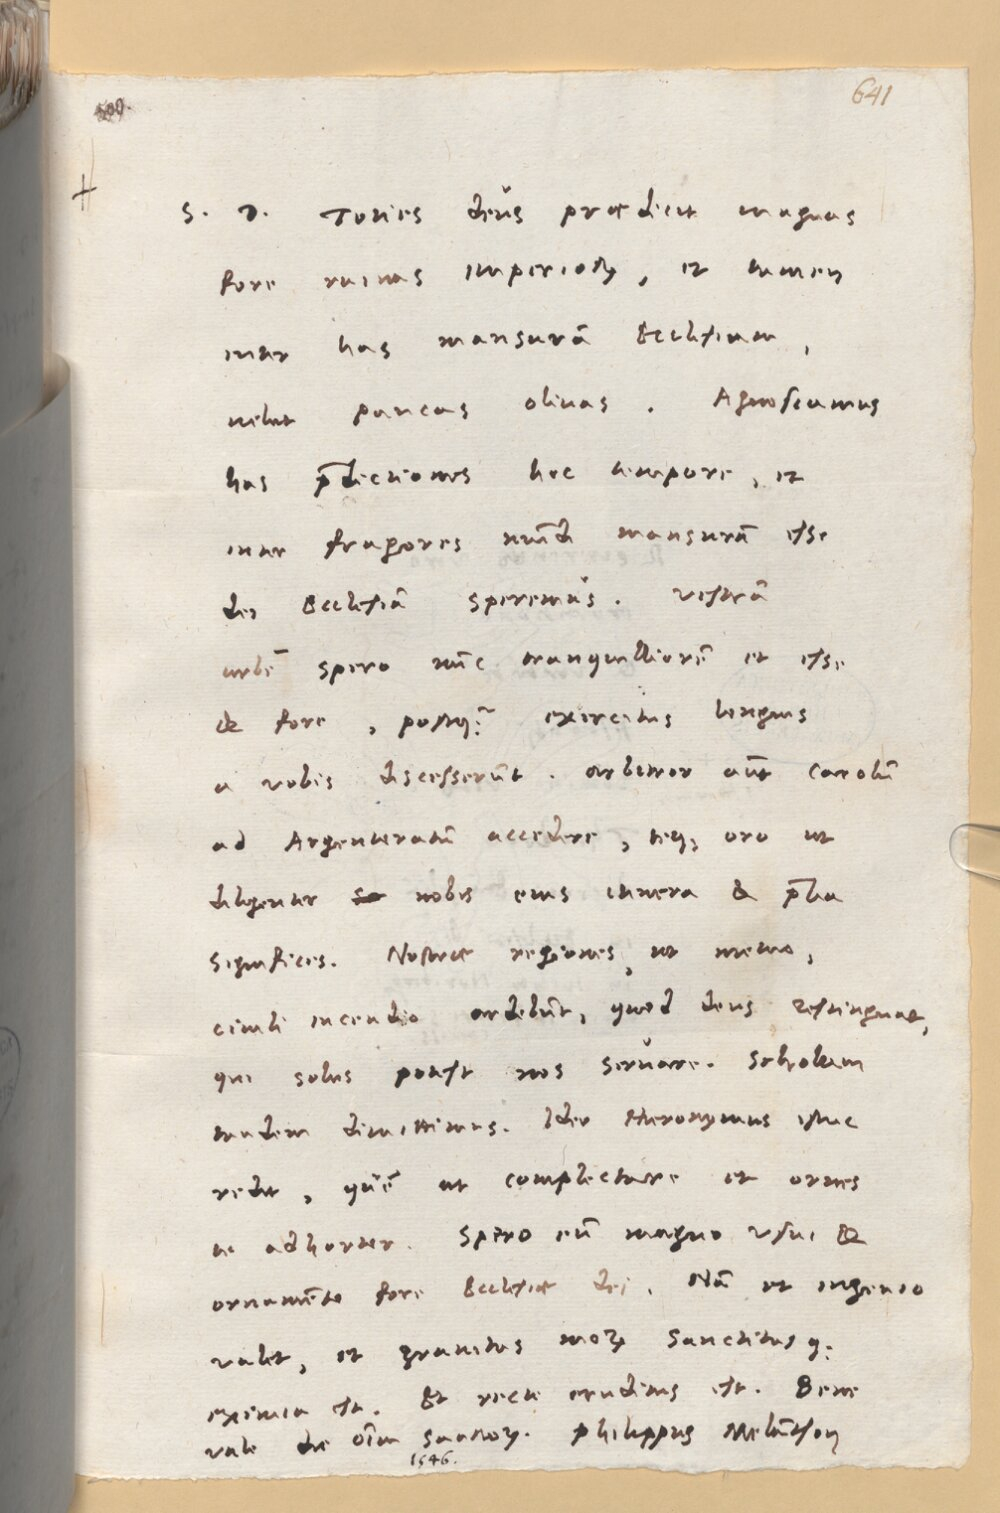 641
S. D. Toties deus praedicit magnas
fore ruinas imperioꝝ, et tamen
inter has mansurā Ecclesiam,
velut paucas olivas. Agnoscamus
has p̄dictiones hoc tempore, et
inter fragores mūdi mansurā esse
dei Ecclesiā speremus. Vestrā
urbē spero nūc tranquilliorē et esse
& fore, postq̄ exercitus longius
a vobis discesserūt. Arbitror aūt Carolū
ad Argentoratū accedere, teq, oro ut
diligenter nobis eius itinera & p̄lia
significes. Nostrae regiones, ut metuo,
civili incendio ardebūt, quod deus restinguat,
qui solus potest nos servare. Scholam
tandem dimittimus. Ideo Hieronymus istuc
redit, quē ut complectare et ornes
te adhortor. Spero eū magno usui &
ornamēto fore Ecclesiae dei. Nā et ingenio
valet, et gravitas moꝝ sanctitasq:
eximia est. Et recte eruditus est. Bene
vale die oīm sanctoꝝ. Philippus Melāthon
1546.